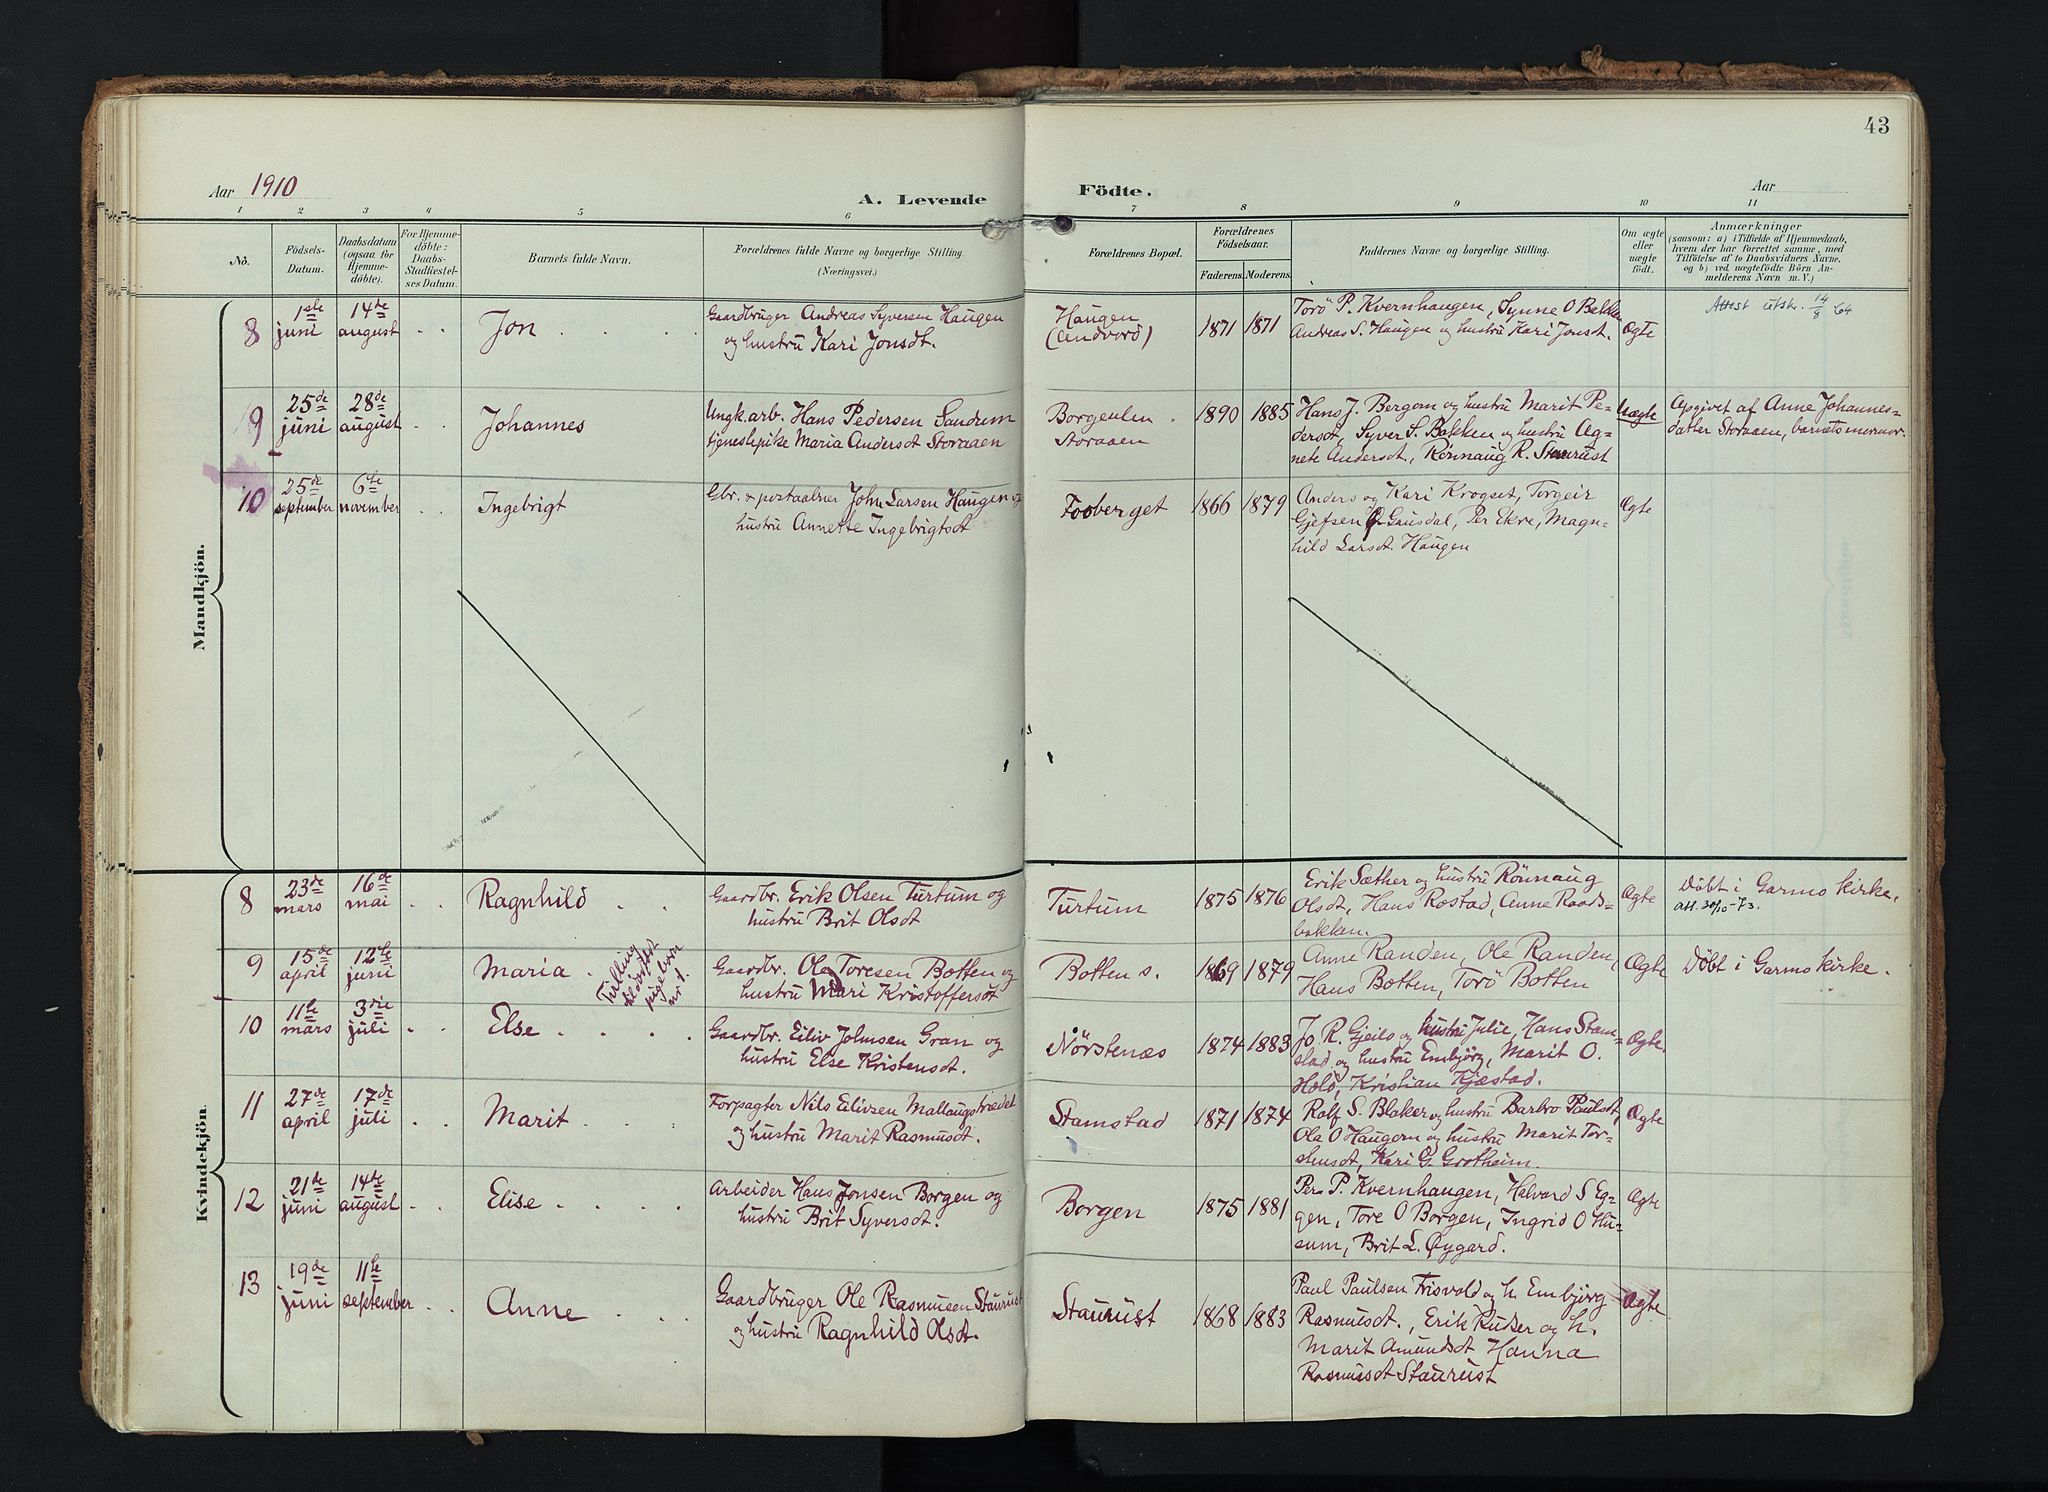 43
Aar 1910
A. Levende
Födte.
Aar
1 2 3 4 5 6 7 8 9 10 11
No.
Födsels-
Datum.
Daabsdatum
(ogsaa for
Hjemme-
döbte).
For Hjemme-
döbte:
Daabs-
Stadfæstel-
ses Datum.
Barnets fulde Navn.
Forældrenes fulde Navne og borgerlige Stilling.
(Næringsvei.)
Forældrenes Bopæl.
Forældrenes
Födselsaar.
Faderens. Moderens.
Faddernes Navne og borgerlige Stilling.
Om ægte
eller
uægte
födt.
Anmærkninger
(saasom: a) i Tilfælde af Hjemmedaab,
hvem der har forrettet samme, med
Tilföielse af to Daabsvidners Navne,
og b) ved uægtefödte Börn An-
melderens Navn m. V.)
Mandkjön.
8
1ste
juni
14de
august
Jon
Gaardbruger Andreas Syversen Haugen
og hustru Kari Jonsdt.
Haugen
(Andvord)
1871 1871
Torö P. Kvernhaugen, Synne O Bakken
Andreas S. Haugen og hustru Kari Jonsdt.
Ægte
Attest utstr. 14/8 64
9
25de
juni
28de
august
Johannes
Ungk. arb. Hans Pedersen Sandum
tjenestepike Maria Andersdt Storaaen
Borgenlen
Storaaen
1890 1885
Hans J. Bergom og hustru Marit Pe-
dersdt, Syver S. Bakken og hustru Ag-
nete Andersdt, Rönnaug R. Staurust
Uægte
Opgivet af Anne Johannes-
datter Storaaen, barnets mormor.
10
25de
september
6te
november
Ingebrigt
Gbr. & postaabner John Larsen Haugen og
hustru Annette Ingebrigtsdt
Fooberget
1866 1879
Anders og Kari Krogset, Torgeir
Gjefsen Gausdal, Per Ekre, Magn-
hild Larsdt. Haugen
Ægte
Kvindekjön.
8
23de
mars
16de
mai
Ragnhild
Gaardbr. Erik Olsen Turtum og
hustru Brit Olsdt
Turtum
1875 1876
Erik Sæther og hustru Rönnaug
Olsdt, Hans Rostad, Anne Raads-
bakken.
Ægte
Döbt i Garmo kirke.
Att. 30/10-73.
9
15de
april
12te
juni
Maria
Tvilling
til dödfödt
pigebarn
nr 1.
Gaardbr. Ole Toresen Botten og
hustru Mari Kristoffersdt
Botten s.
1869 1879
Anne Randen, Ole Randen,
Hans Botten, Torö Botten
Ægte
Döbt i Garmo kirke.
10
11te
mars
3die
juli
Else
Gaardbr. Eiliv Johnsen Gran og
hustru Else Kristensdt.
Nörstenæs
1874 1883
Jo. R. Gjeilo og hustru Julie, Hans Stam-
stad og hustru Embjörg, Marit O.
Holö, Kristian Kjæstad.
Ægte.
11
27de
april
17de
juli
Marit
Forpagter Nils Eilivsen Mallaugstrædet
og hustru Marit Rasmusdt.
Stamstad
1871 1874
Rolf S. Blaker og hustru Barbro Paulsdt,
Ola O Haugom og hustru Marit Tor-
stensdt, Kari G. Grotheim.
Ægte
12
21de
juni
14de
august
Elise
Arbeider Hans Jonsen Borgen og
hustru Brit Syversdt.
Borgen
1875 1881
Per P. Kvernhaugen, Halvard S Eg-
gen, Tore O Borgen, Ingrid O Hu-
sum, Brit L. Öygard.
Ægte
13
19de
juni
11te
september
Anne
Gaardbruger Ole Rasmusen Staurust
og hustru Ragnhild Olsdt.
Staurust
1868 1883
Paul Paulsen Frisvold og h Embjörg
Rasmusdt., Erik Rusten og h.
Marit Amundsdt Hanna
Rasmusdt Staurust
Ægte